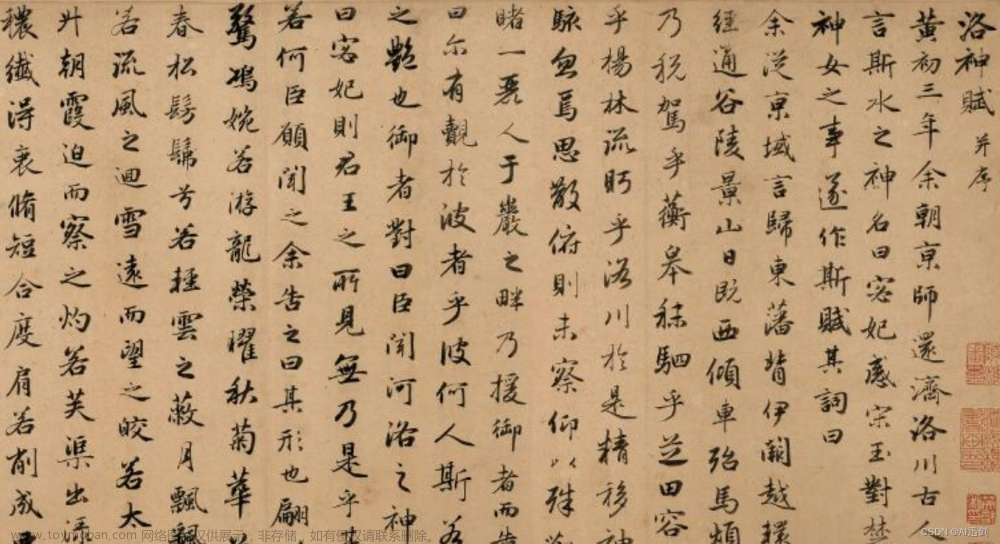 洛神賦 并序
黃初三年余朝京師還濟洛川古人
言斯水之神名曰宓妃感宋玉對楚
神女之事遂作斯賦其詞曰
余從京域言歸東藩背伊闕越轘
經通谷陵景山日既西傾車殆馬煩
乃稅駕乎蘅皋秣駟乎芝田容
乎楊林流眄乎洛川於是精移神
駭忽焉思散俯則未察仰以殊觀
睹一麗人于巖之畔乃援御者而告
曰爾有覿於彼者乎彼何人斯若
之艷也御者對曰臣聞河洛之神
曰宓妃則君王之所見無乃是乎其
若何臣願聞之余告之曰其形也翩
驚鴻婉若游龍榮曜秋菊華
春松髣髴兮若輕雲之蔽月飄飄
若流風之迴雪遠而望之皎若太
升朝霞迫而察之灼若芙渠出
穠纖得衷脩短合度肩若削成
www.toymoban.com 网络图片仅供展示，非存储，如有侵权请联系删除。
CSDN @AI逐剑